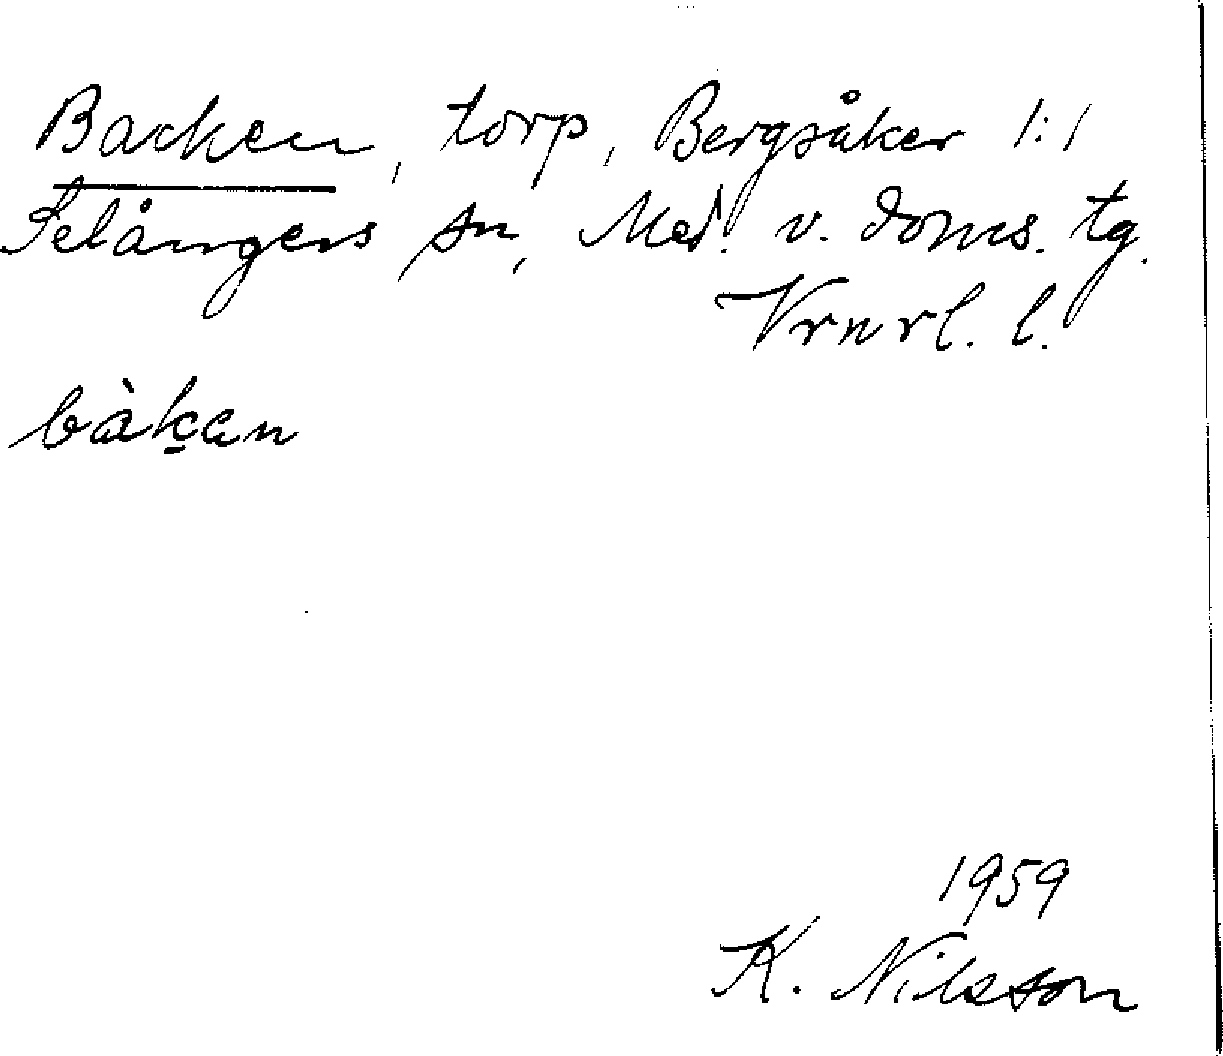 Backen, torp, Bergsåker 1:1
Selångers sn, Med. v. doms. tg.
Vrnrl. l.
bàk̠an
1959
K. Nilsson